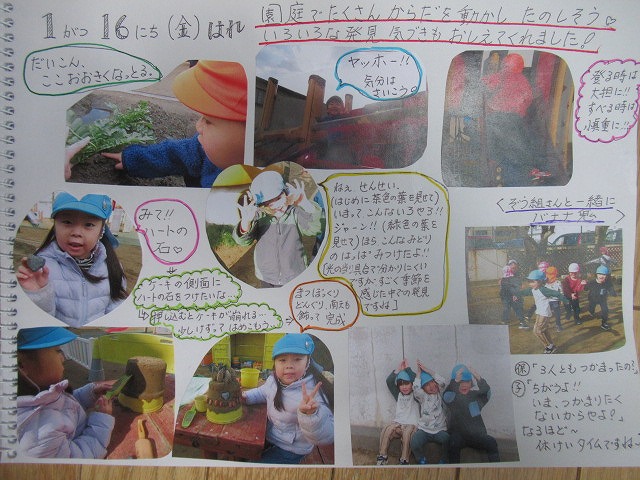 1がつ 16にち (金) はれ
園庭でたくさんからだを動かし たのしそう♡
いろいろな発見 気づきもおしえてくれました!
だいこん、
ここおおきくなっとる。
ヤッホー!!
気分は
さいこう。
登る時は
大胆に!!
すべる時は
慎重に!!
みて!!
ハートの
石♡
ねぇ、せんせい。
(はじめに茶色の葉を見せて)
いまって こんないろやろ!!
ジャーン!! (緑色の葉を
見せて) ほら こんなみどり
のはっぱ みつけたよ!!
光の当り具合で分かりにくい
ですが すごく季節を
感じた中での発見
ですね
<ぞう組さんと一緒に
バナナ鬼>
ケーキの側面に
ハートの石をつけたいな
押し込むとケーキが崩れる…
少しけずって はめこもう
まつぼっくり
どんぐり、雨えも
飾って 完成
保「3人ともつかまったの?」
子「ちがうよ!!
いま、つかまりたく
ないからやよ?」
なるほど〜
休けいタイムですね〜